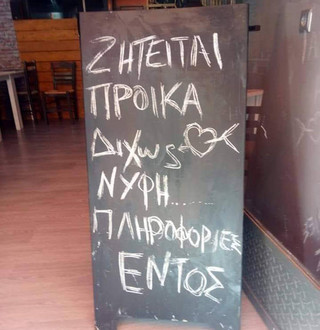 ΖΗΤΕΙΤΑΙ
ΠΡΟΙΚΑ
ΔΙΧως
ΝΥΦΗ.......
ΠΛΗΡΟΦΟΡΙΕΣ
ΕΝΤΟΣ